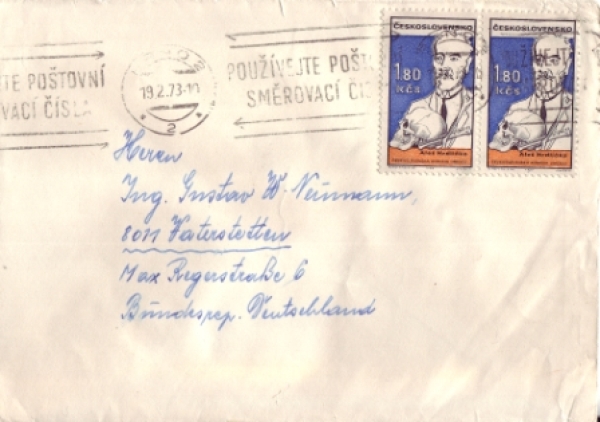 TE POŠTOVNÍ
VACÍ ČÍSLA
19.2.73-10
2
POUŽÍVEJTE POŠT
SMĚROVACÍ ČÍS
ČESKOSLOVENSKO
1,80
KČS
Aleš Hrdlička
ČESKOSLOVENSKO
1,80
KČS
Aleš Hrdlička
Herrn
Ing. Gustav W. Neumann,
8011 Vaterstetten
Max Regerstraße 6
Bundesrep. Deutschland